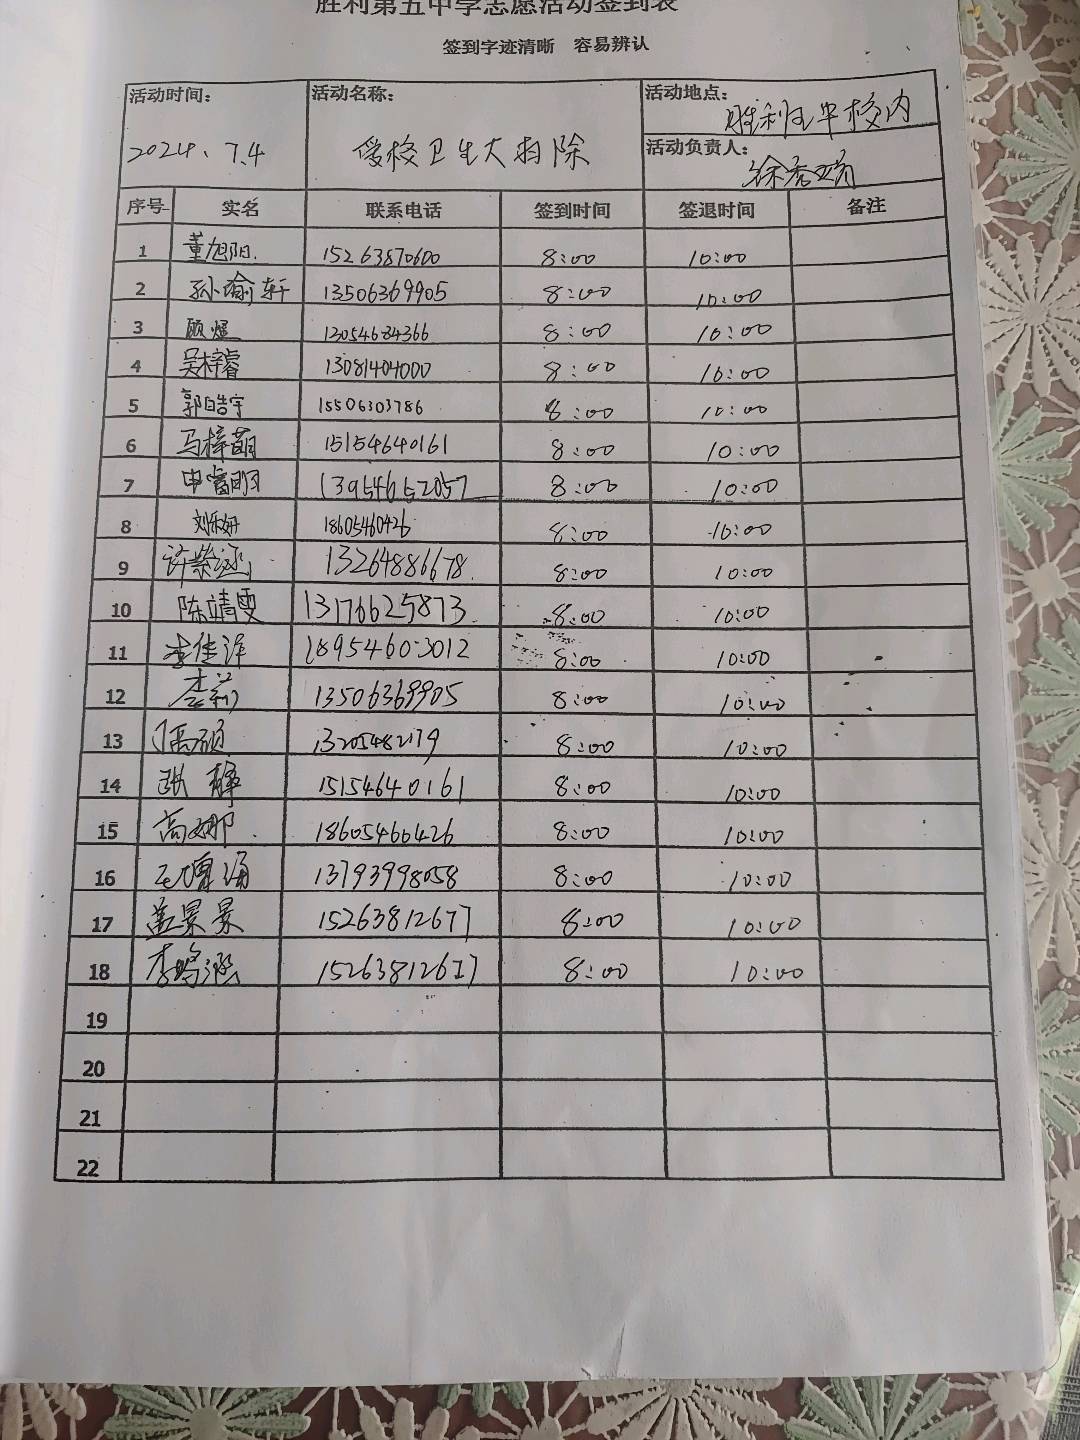 胜利第五中学志愿活动签到表
签到字迹清晰 容易辨认
活动时间: 活动名称: 活动地点: 胜利五中校内
2024.7.4 学校卫生大扫除 活动负责人: 徐秀娟
序号 实名 联系电话 签到时间 签退时间 备注
1 董旭阳. 15263870600 8:00 10:00
2 孙瑜轩 13506369905 8:00 10:00
3 顾煜 13054684366 8:00 10:00
4 吴梓睿 13081404000 8:00 10:00
5 郭皓宇 15506303786 8:00 10:00
6 马梓萌 15154640161 8:00 10:00
7 申睿明 13954652057 8:00 10:00
8 刘乐妍 18605460426 8:00 10:00
9 许紫涵 13264886678 8:00 10:00
10 陈靖雯 13176625873 8:00 10:00
11 李佳泽 18954603012 8:00 10:00
12 李莉 13506369905 8:00 10:00
13 8:00 10:00
14 张静 15154640161 8:00 10:00
15 高娜 18605460426 8:00 10:00
16 13793998058 8:00 10:00
17 盖景景 15263812677 8:00 10:00
18 李 涵 8:00 10:00
19
20
21
22